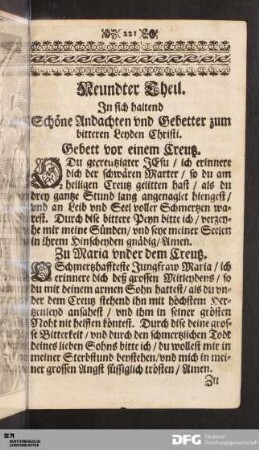 221
Neundter Theil.
In sich haltend
Schöne Andachten vnd Gebetter zum
bitteren Leyden Christi.
Gebett vor einem Creutz.
O Du gecreutzigter JEsu / ich erinnere
dich der schwären Marter / so du am
heiligen Creutz gelitten hast / als du
drey gantze Stund lang angenaglet hiengest /
vnd an Leib vnd Seel voller Schmertzen wa-
rest. Durch dise bittere Peyn bitte ich / verzey-
he mir meine Sünden / vnd seye meiner Seelen
in ihrem Hinscheyden gnädig / Amen.
Zu Maria vnder dem Creutz.
O Schmertzhaffteste Jungfraw Maria / ich
erinnere dich deß grossen Mitleydens / so
du mit deinem armen Sohn hattest / als du vn-
der dem Creutz stehend ihn mit höchstem Her-
tzenleyd ansahest / vnd ihm in seiner grösten
Noht nit helffen köntest. Durch dise deine gros-
se Bitterkeit / vnd durch den schmertzlichen Todt
deines lieben Sohns bitte ich / du wollest mir in
meiner Sterbstund beystehen / vnd mich in mei-
ner grossen Angst süssiglich trösten / Amen.
Zu
DFG Deutsche
Forschungsgemeinschaft